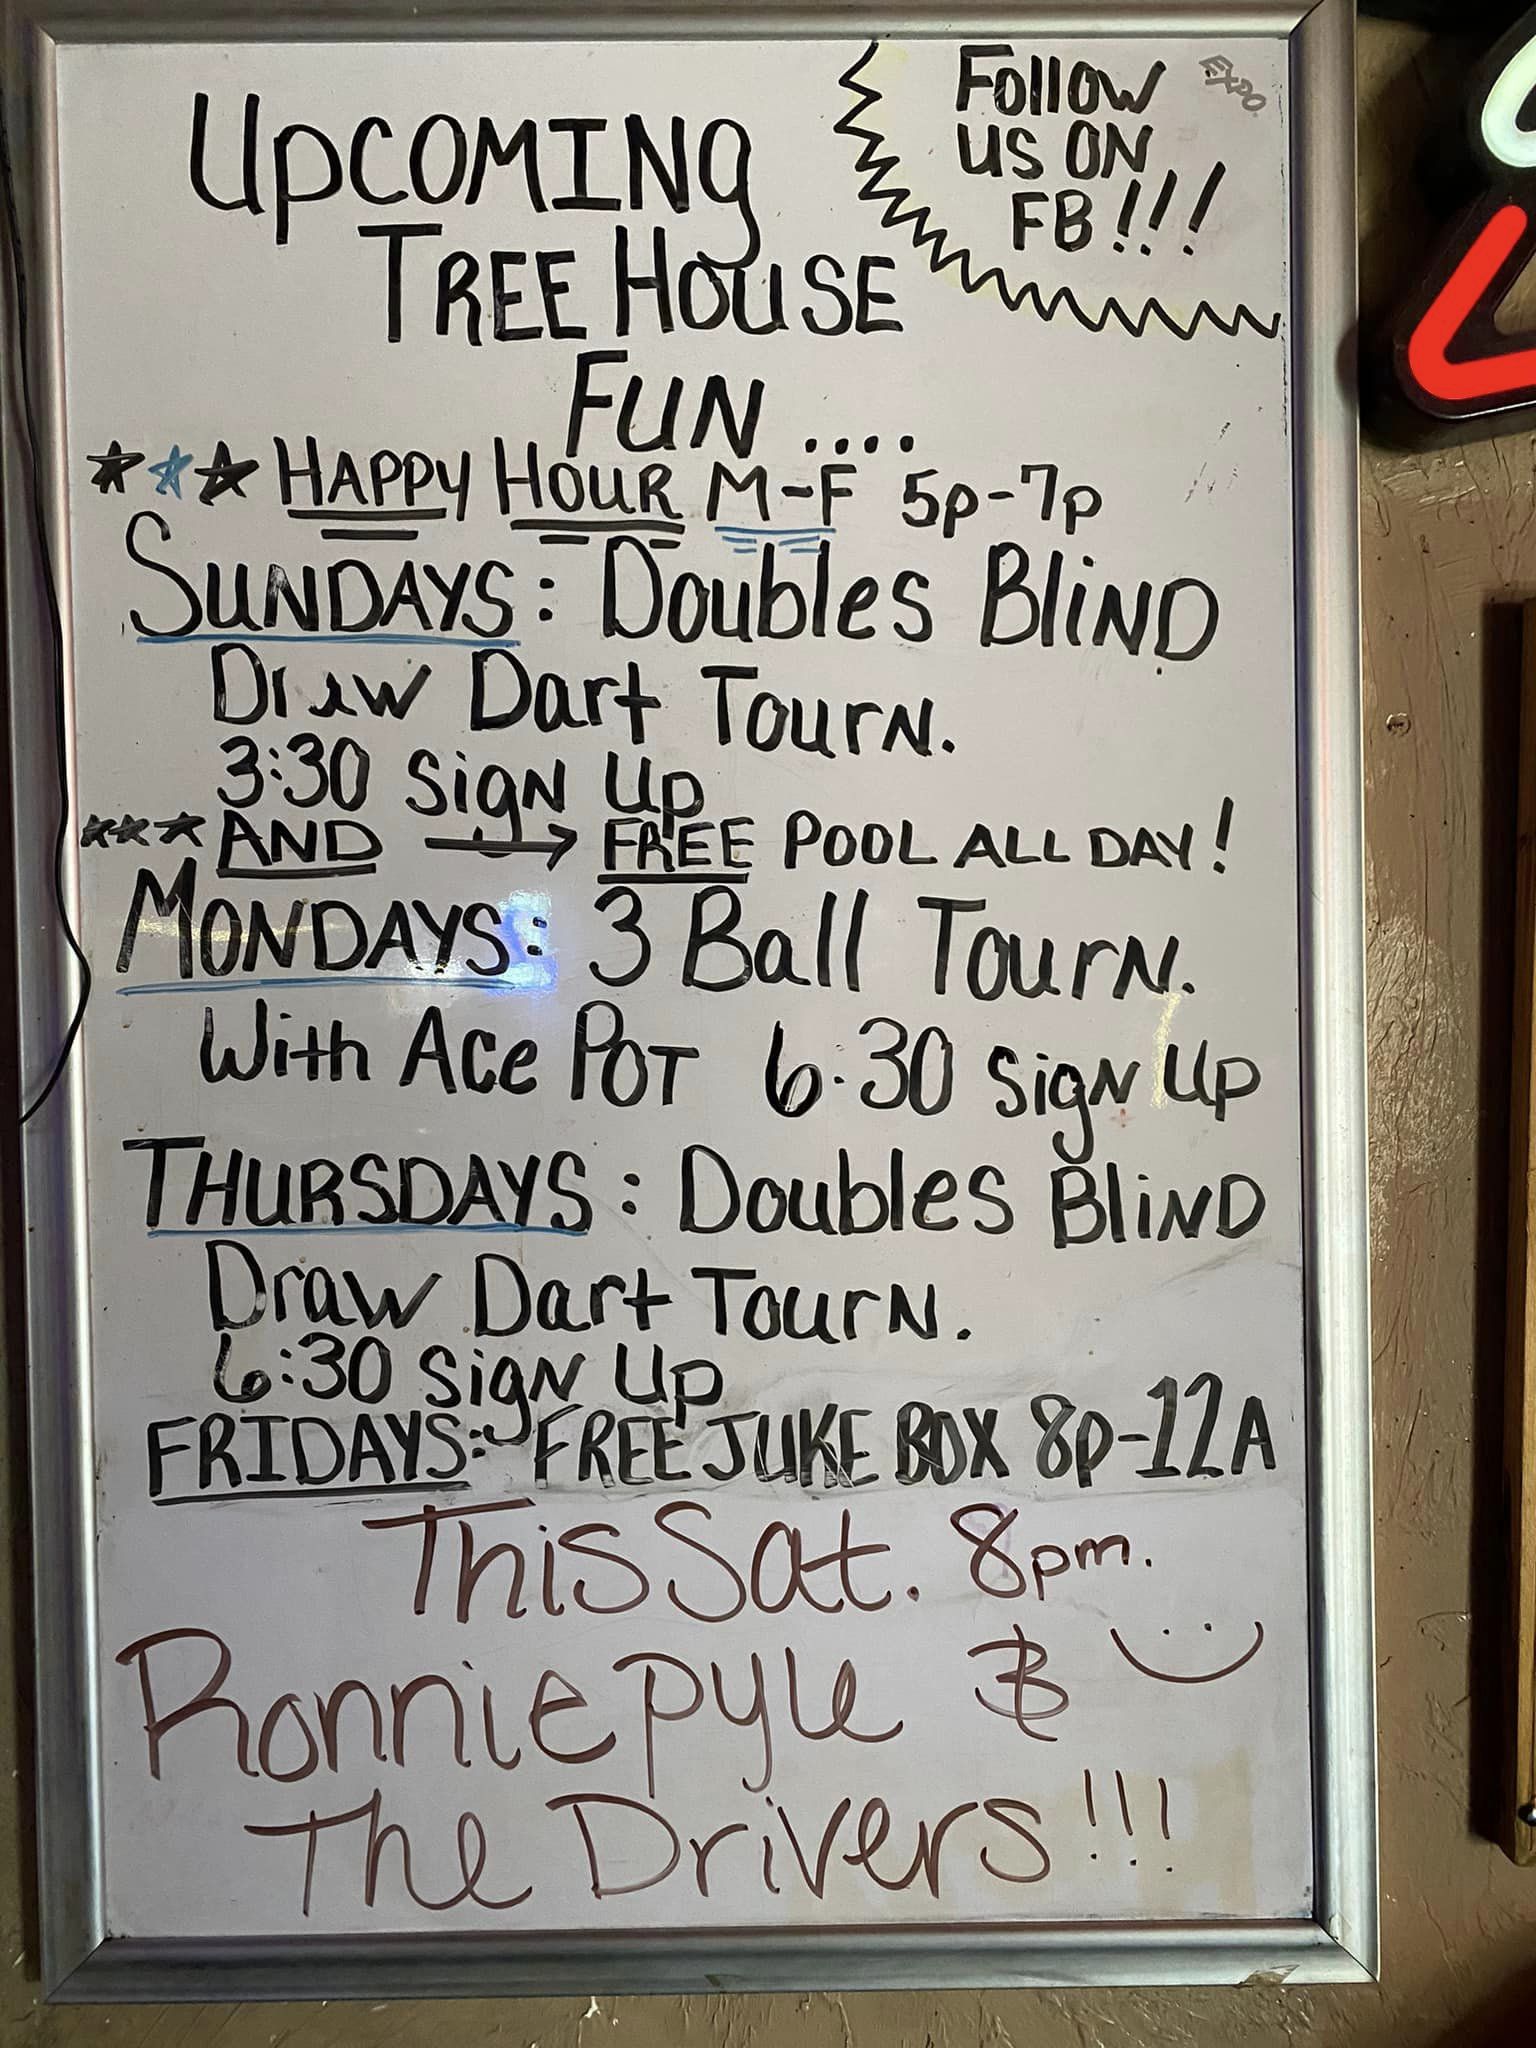 Follow
us on
FB!!!
EXPO
Upcoming
Tree House
Fun....
Happy Hour M-F 5p-7p
Sundays: Doubles Blind
Draw Dart Tourn.
3:30 Sign Up
AND → FREE POOL ALL DAY!
Mondays: 3 Ball Tourn.
With Ace Pot 6:30 Sign Up
Thursdays: Doubles Blind
Draw Dart Tourn.
6:30 Sign Up
FRIDAYS: FREE JUKE BOX 8p-12A
This Sat. 8pm.
Ronnie Pyle &
The Drivers!!!